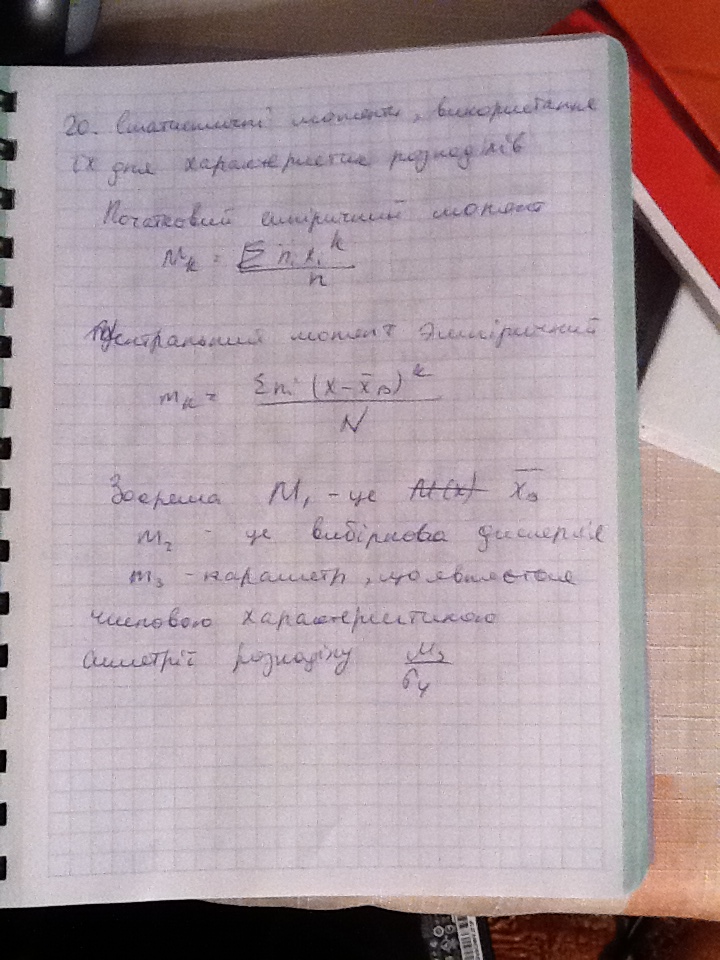 20. Статистичні моменти, використання
їх для характеристик розподілів
Початковий емпіричний момент
M_k = Σ n_i x_i^k / n
Центральний момент Эмпіричний
m_k = Σ n_i (x - x̄_в)^k / N
Зокрема M_1 - це x̄_в
m_2 - це вибіркова дисперсія
m_3 - параметр, що є
числовою характеристикою
симетрії розподілу μ_3 / σ_4